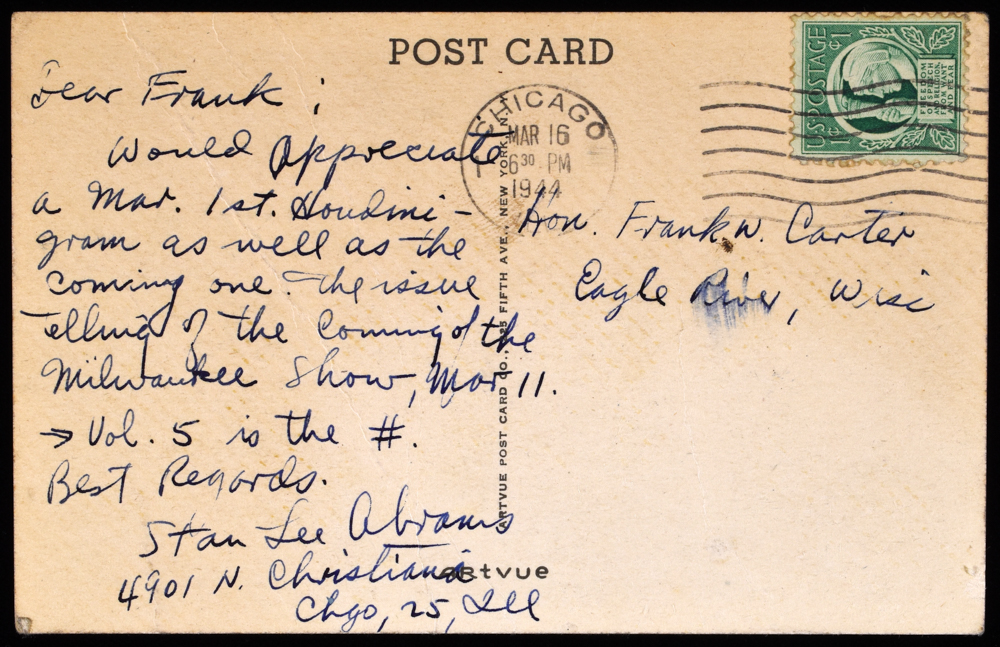 POST CARD
Dear Frank;
Would Appreciate
a Mar. 1st. Houdini-
gram as well as the
coming one. The issue
telling of the Coming of the
Milwaukee Show, Mar 11.
→ Vol. 5 is the #.
Best Regards.
Stan Lee Abrams
4901 N. Christiana
Chgo, 25, Ill
ARTVUE POST CARD CO., 225 FIFTH AVE., NEW YORK, N.Y.
artvue
CHICAGO
MAR 16
6 30 PM
1944
U.S. POSTAGE
1¢ 1¢
FREEDOM
OF SPEECH
AND RELIGION,
FROM WANT
AND FEAR
Hon. Frank W. Carter
Eagle River, Wisc